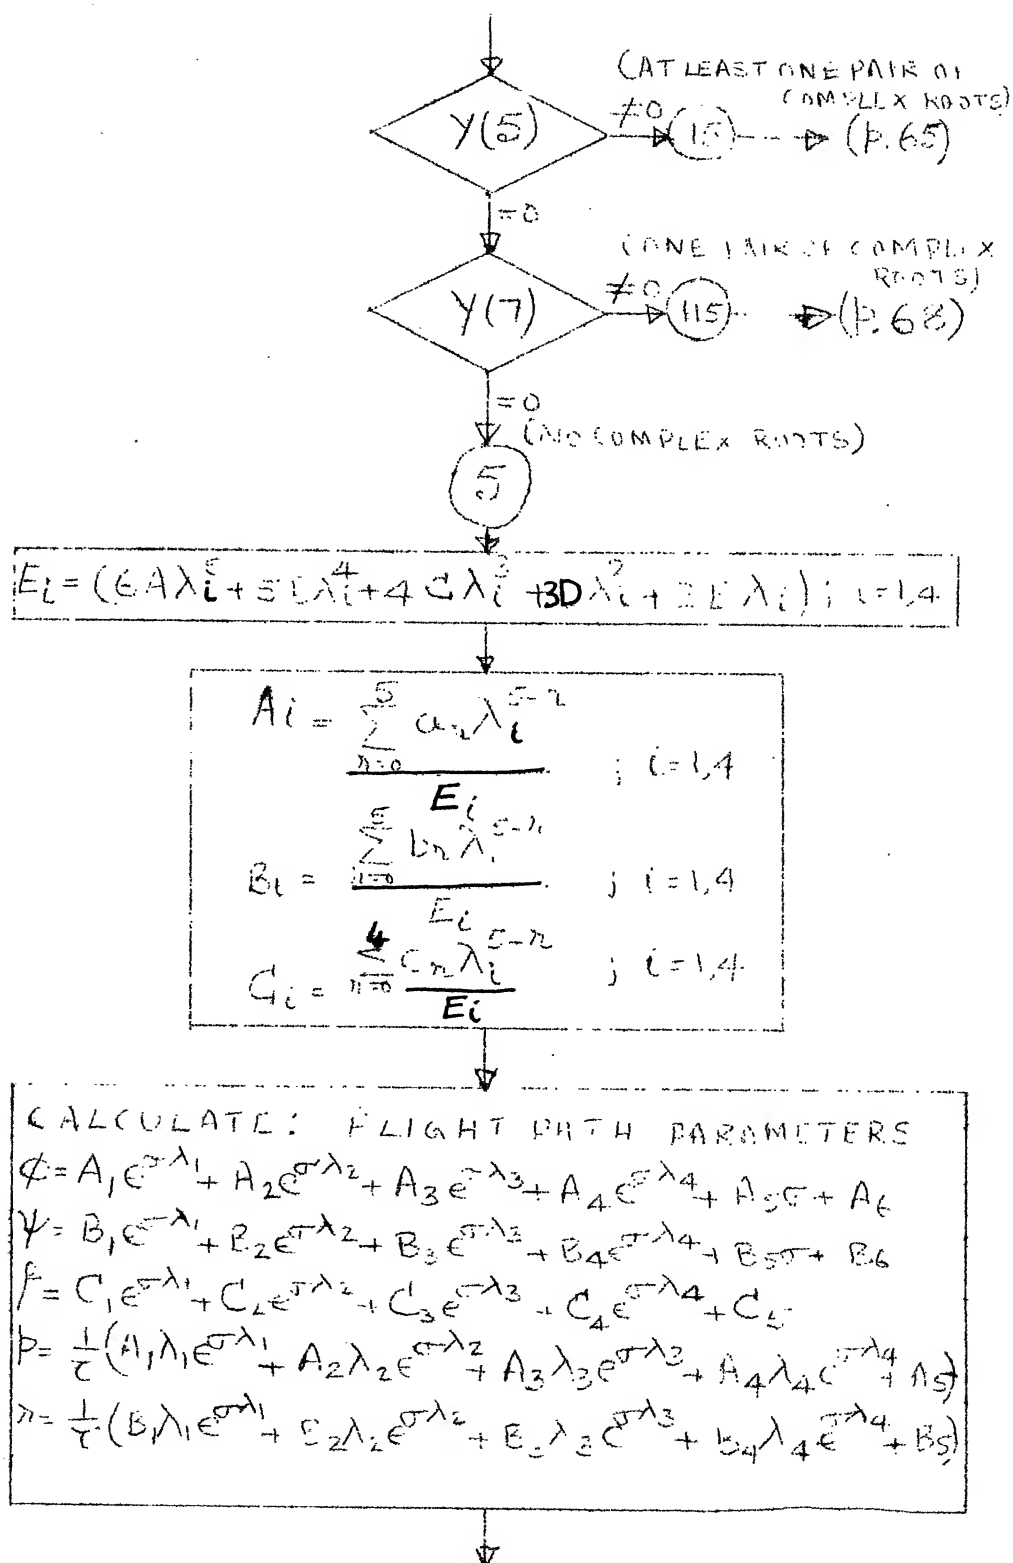 (AT LEAST ONE PAIR OF
COMPLEX ROOTS)
Y(5) ≠0 15 (P.65)
=0
(ONE PAIR OF COMPLEX
ROOTS)
Y(7) ≠0 115 (P.68)
=0
(NO COMPLEX ROOTS)
5
E_i = (6Aλ_i^5 + 5Bλ_i^4 + 4Cλ_i^3 + 3Dλ_i^2 + 2Eλ_i) ; i=1,4
A_i = Σ_{n=0}^{5} a_n λ_i^{5-n} / E_i ; i=1,4
B_i = Σ_{n=0}^{5} b_n λ_i^{5-n} / E_i ; i=1,4
C_i = Σ_{n=0}^{4} C_n λ_i^{5-n} / E_i ; i=1,4
CALCULATE: FLIGHT PATH PARAMETERS
φ = A_1 e^{σλ_1} + A_2 e^{σλ_2} + A_3 e^{σλ_3} + A_4 e^{σλ_4} + A_5 σ + A_6
ψ = B_1 e^{σλ_1} + B_2 e^{σλ_2} + B_3 e^{σλ_3} + B_4 e^{σλ_4} + B_5 σ + B_6
β = C_1 e^{σλ_1} + C_2 e^{σλ_2} + C_3 e^{σλ_3} + C_4 e^{σλ_4} + C_5
p = 1/τ (A_1 λ_1 e^{σλ_1} + A_2 λ_2 e^{σλ_2} + A_3 λ_3 e^{σλ_3} + A_4 λ_4 e^{σλ_4} + A_5)
r = 1/τ (B_1 λ_1 e^{σλ_1} + B_2 λ_2 e^{σλ_2} + B_3 λ_3 e^{σλ_3} + B_4 λ_4 e^{σλ_4} + B_5)